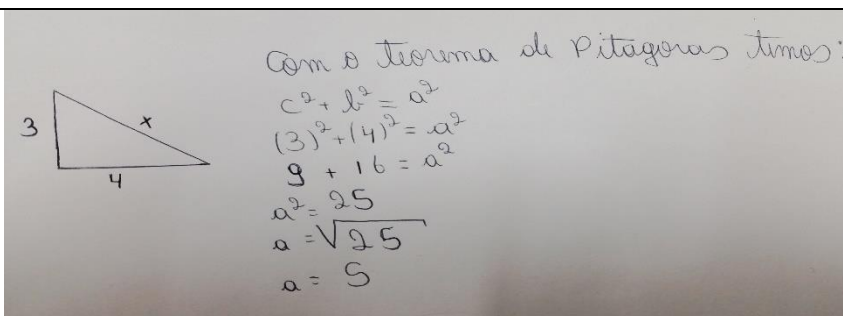 Com o teorema de Pitágoras temos:
c² + b² = a²
3
x
(3)² + (4)² = a²
9 + 16 = a²
4
a² = 25
a = √25
a = 5